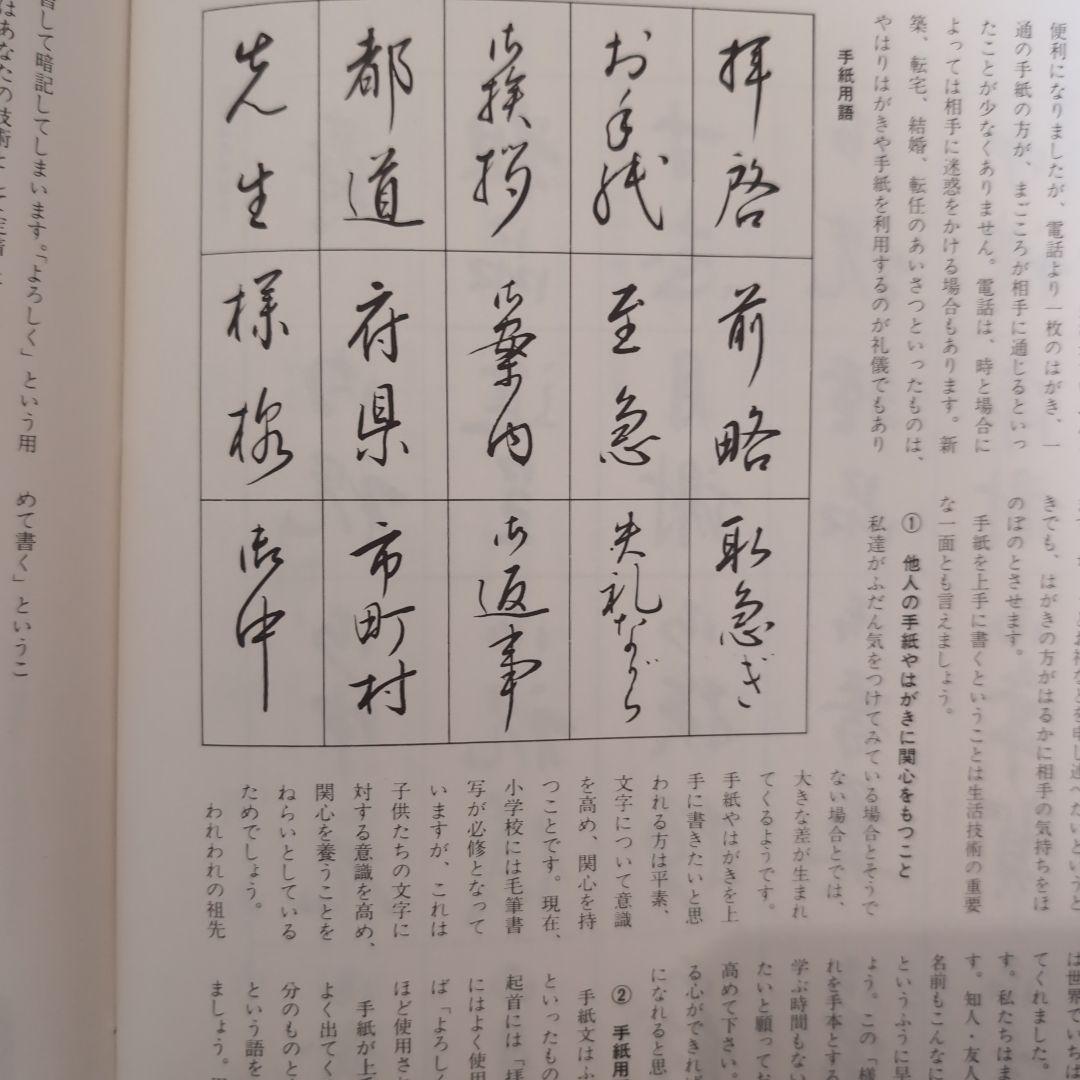 便利になりましたが、電話より一枚のはがき、一
通の手紙の方が、まごころが相手に通じるといっ
たことが少なくありません。電話は、時と場合に
よっては相手に迷惑をかける場合もあります。新
築、転宅、結婚、転任のあいさつといったものは、
やはりはがきや手紙を利用するのが礼儀でもあり
手紙用語
拝啓
前略
取急ぎ
お手紙
至急
失礼ながら
御挨拶
御案内
御返事
都道
府県
市町村
先生
様様
御中
きでも、はがきの方がはるかに相手の気持ちをほ
のぼのとさせます。
手紙を上手に書くということは生活技術の重要
な一面とも言えましょう。
① 他人の手紙やはがきに関心をもつこと
私達がふだん気をつけてみている場合とそうで
ない場合とでは、
大きな差が生まれ
てくるようです。
手紙やはがきを上
手に書きたいと思
われる方は平素、
文字について意識
を高め、関心を持
つことです。現在、
小学校には毛筆書
写が必修となって
いますが、これは
子供たちの文字に
対する意識を高め、
関心を養うことを
ねらいとしている
ためでしょう。
われわれの祖先
は世界でいちば
てくれました。
す。私たちはま
す。知人・友人
名前もこんなに
というふうに早
ょう。この「様
れを手本とする
学ぶ時間もない
たいと願ってお
高めて下さい。
る心ができれば
になれると思
② 手紙用
手紙文はふ
といったもの
起首には「拝
にはよく使用
ば「よろしく
ほど使用され
手紙が上手
よく出てく
分のものと
という語を
ましょう。
書して暗記してしまいます。「よろしく」という用
めて書く」というこ
はあなたの技術として定着